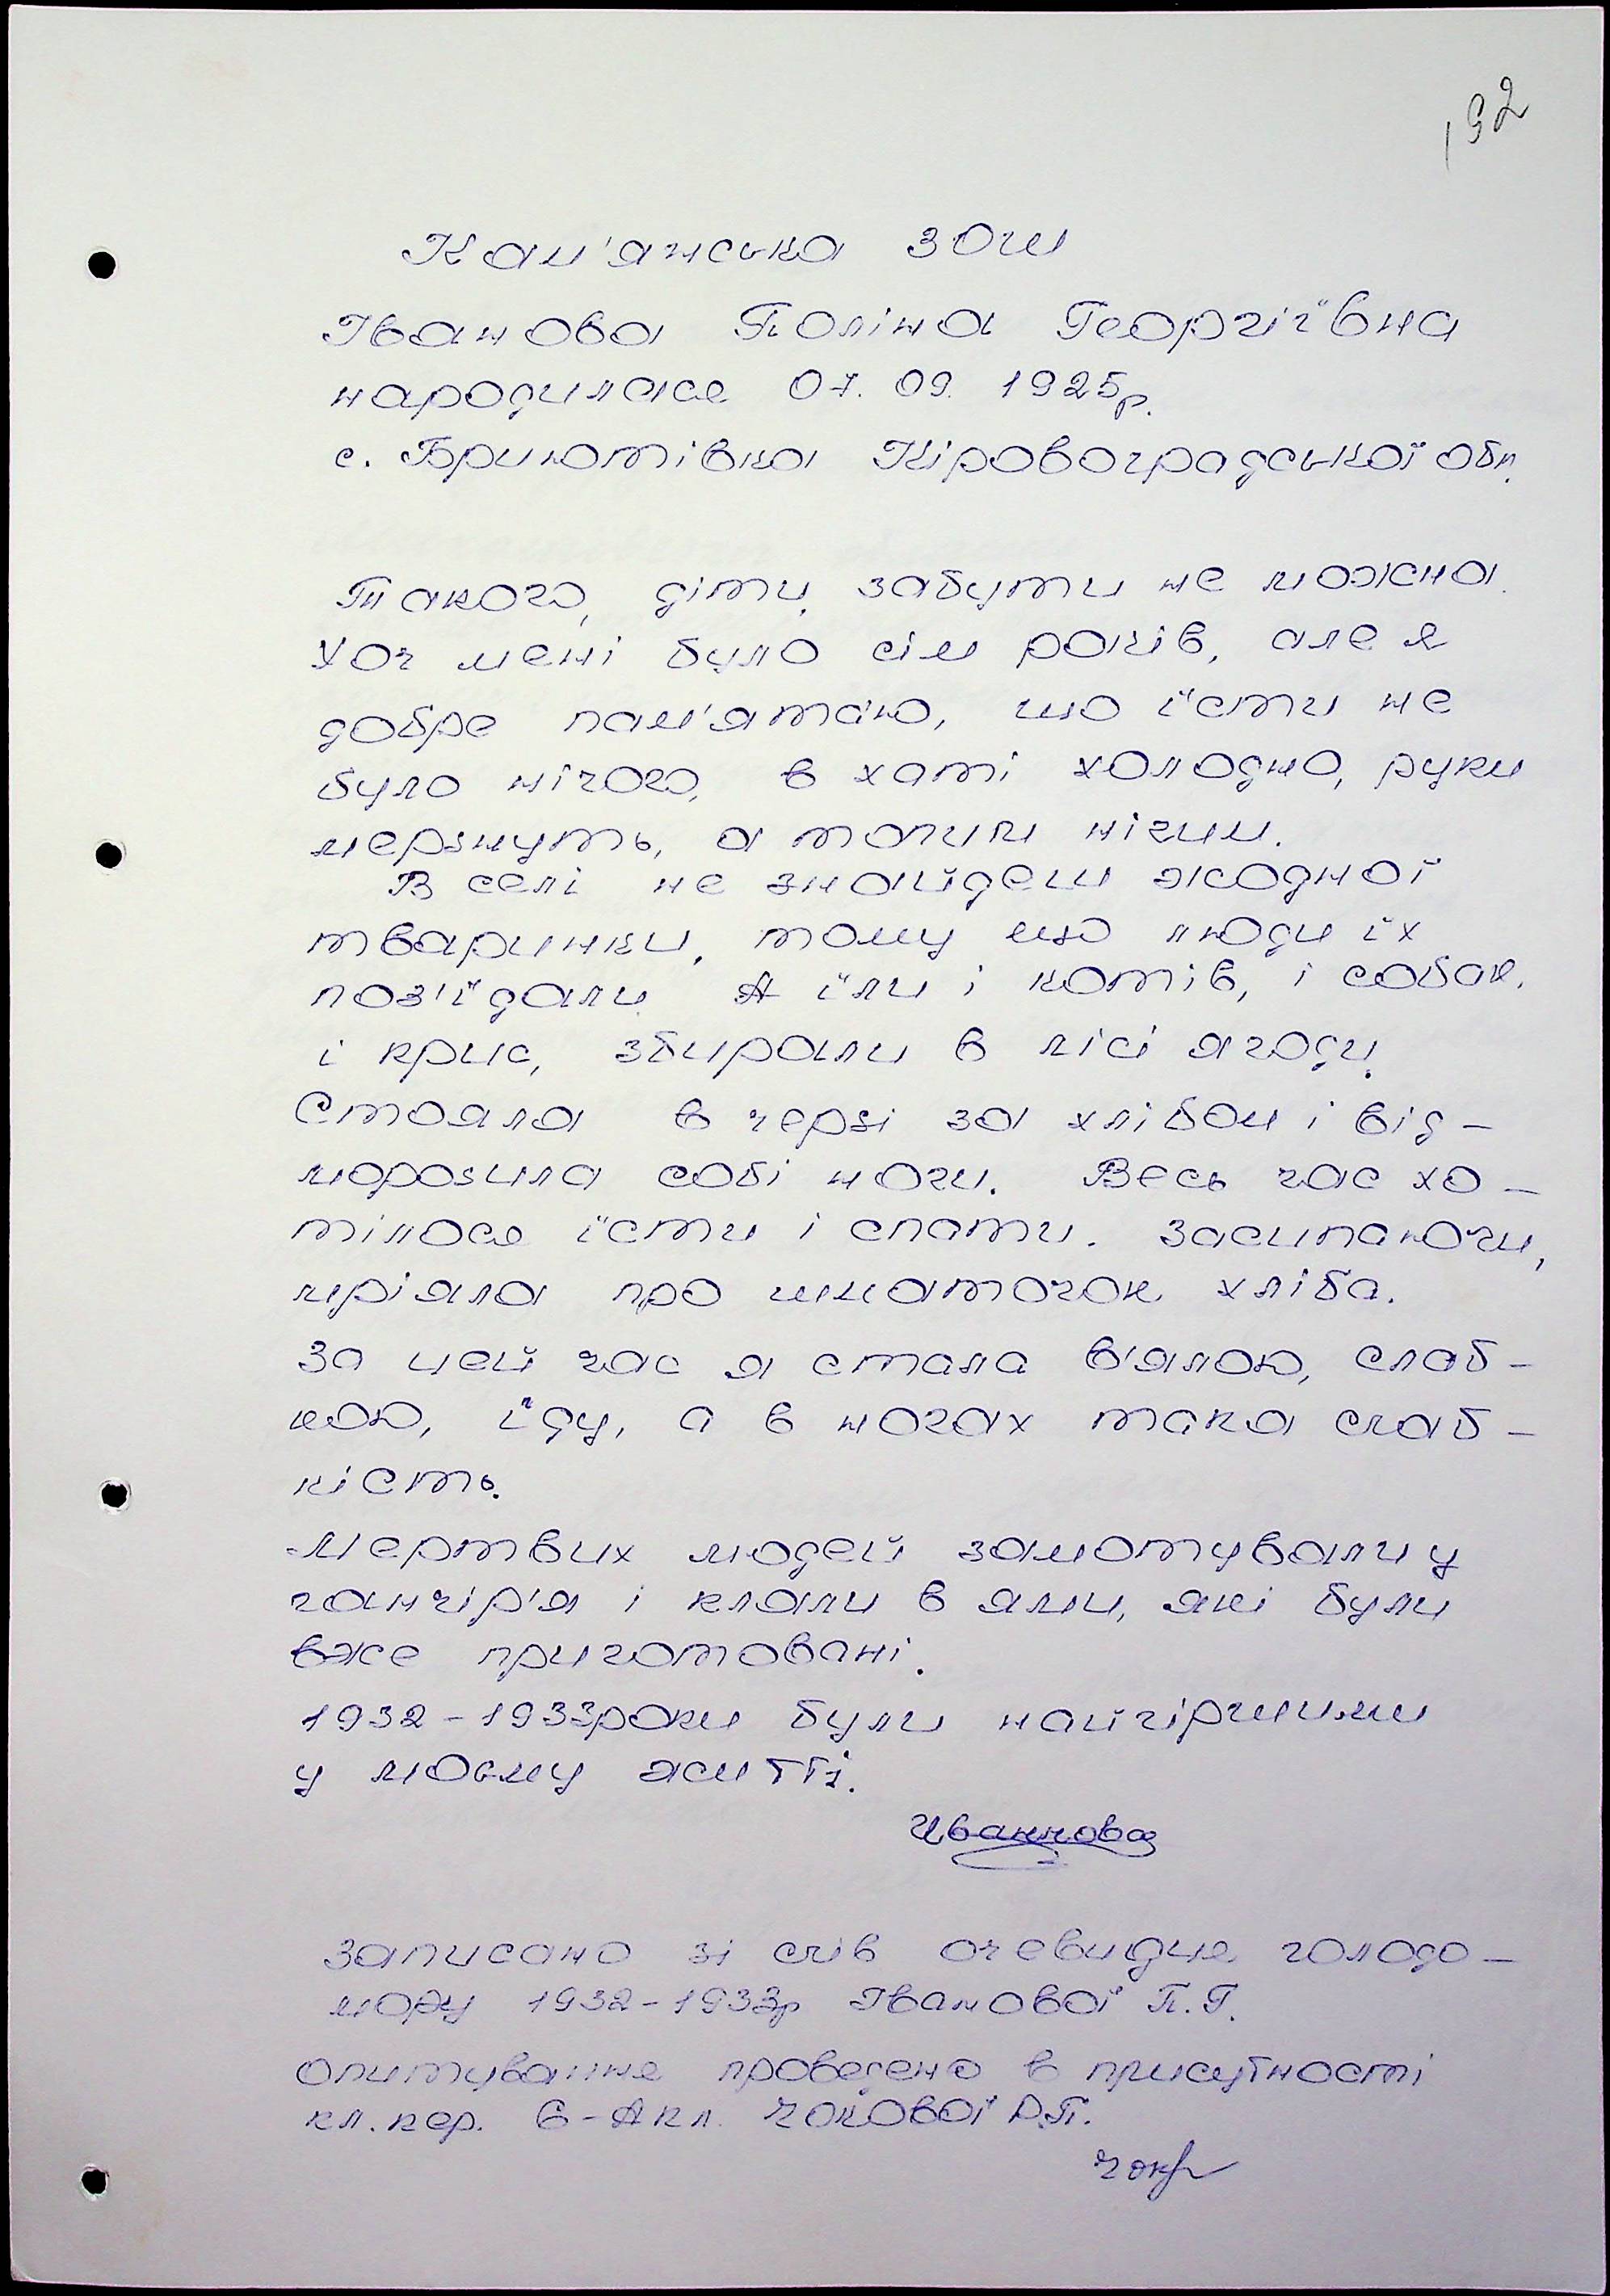 192
Кам'янська ЗОШ
Іванова Поліна Георгіївна
народилася 07. 09. 1925р.
с. Бриютівка Кіровоградської обл.
Такого, діти, забути не можна.
Хоч мені було сім років, але я
добре пам'ятаю, що їсти не
було нічого, в хаті холодно, руки
мерзнуть, а топити нічим.
В селі не знайдеш жодної
тваринки, тому що люди їх
поз'їдали. А їли і котів, і собак,
і крис, збирали в лісі ягоди.
Стояла в черзі за хлібом і від-
морозила собі ноги. Весь час хо-
тілося їсти і спати. Засипаючи,
мріяла про шматочок хліба.
За цей час я стала в'ялою, слаб-
кою, їду, а в ногах така слаб-
кість.
Мертвих людей замотували у
ганчір'я і клали в ями, які були
вже приготовані.
1932-1933роки були найгіршими
у моєму житті.
Иваннова
Записано зі слів очевидця голодо-
мору 1932-1933р Іванової П.Г.
Опитування проведено в присутності
кл. кер. 6-А кл. Чокової Д.П.